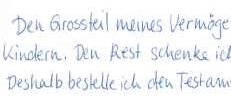 Den Grossteil meines Vermöge
Kindern. Den Rest schenke ich
Deshalb bestelle ich den Testam